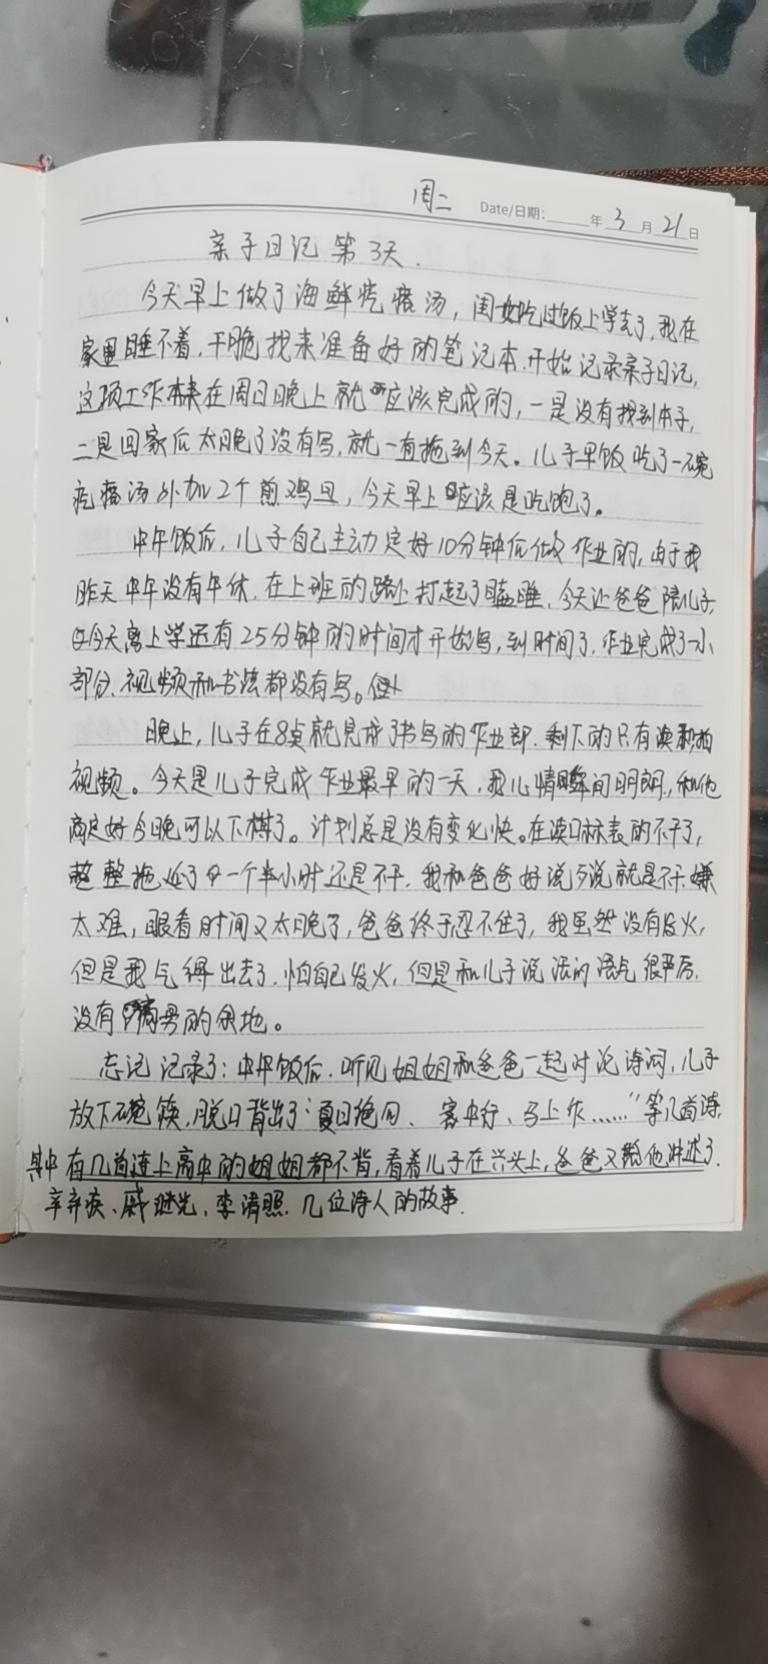 周二 Date/日期: 年 3 月 21 日
亲子日记 第3天.
今天早上做了海鲜疙瘩汤，闺女吃过饭上学去了，我在
家里睡不着，干脆找来准备好的笔记本.开始记录亲子日记，
这项工作本来在周日晚上就应该完成的，一是没有找到本子，
二是回家后太晚了没有写，就一直拖到今天。儿子早饭吃了一碗
疙瘩汤外加2个煎鸡旦，今天早上应该是吃饱了。
中午饭后，儿子自己主动定好10分钟后做作业的，由于我
昨天中午没有午休，在上班的路上打起了瞌睡，今天让爸爸陪儿子，
今天离上学还有25分钟的时间才开始写，到时间了，作业完成了一小
部分、视频和书法都没有写。但
晚上，儿子在8点就完成了书写的作业部、剩下的只有读和拍
视频。今天是儿子完成作业最早的一天，我心情瞬间明朗，和他
商定好今晚可以下棋了。计划总是没有变化快。在读口标表的不干了，
整整拖延了一个半小时还是不干，我和爸爸好说歹说就是不干.嫌
太难，眼看时间又太晚了，爸爸终于忍不住了，我虽然没有发火，
但是我气得出去了.怕自己发火，但是和儿子说话的语气很严厉.
没有商男的余地。
忘记记录了：中午饭后.听见姐姐和爸爸一起讨论诗词，儿子
放下碗筷，脱口背出了“夏日绝句、客中行、马上作……”等几首诗，
其中有几首连上高中的姐姐都不背，看着儿子在兴头上，爸爸又给他讲述了.
辛弃疾、戚继光、李清照.几位诗人的故事.